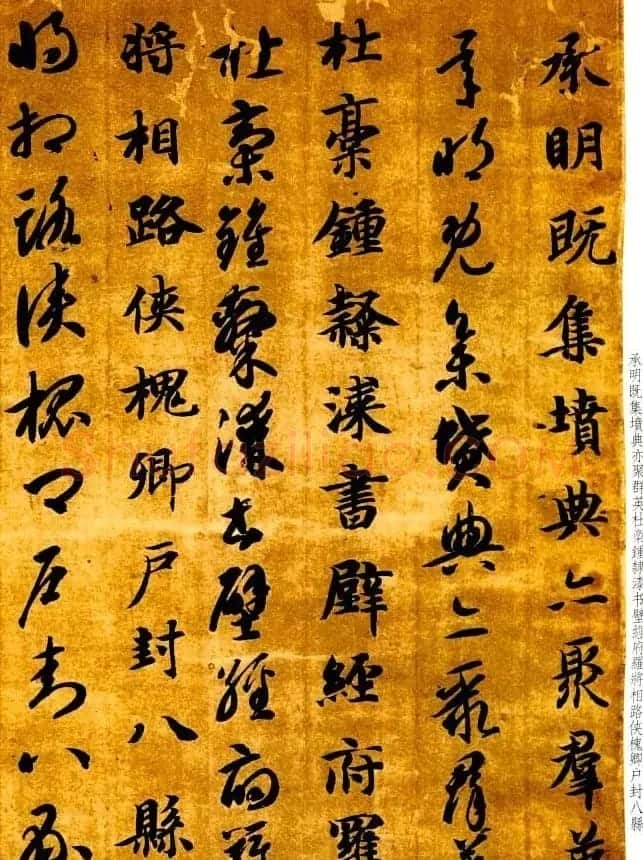 承明既集墳典亦聚羣
承明既集墳典亦聚羣
杜稾鍾隸漆書壁經府羅
杜稾鍾隸漆書壁經府羅
將相路俠槐卿戶封八縣
將相路俠槐卿戶封八縣
承明既集墳典亦聚群英杜稾鍾隸漆书壁經府羅將相路侠槐卿户封八縣